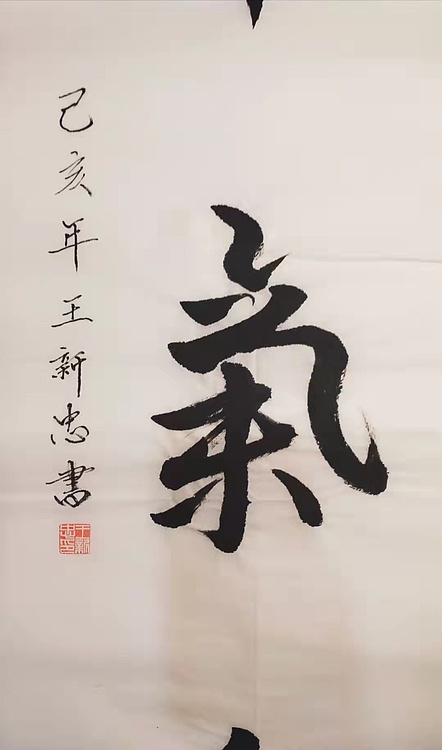 氣
己亥年王新忠書